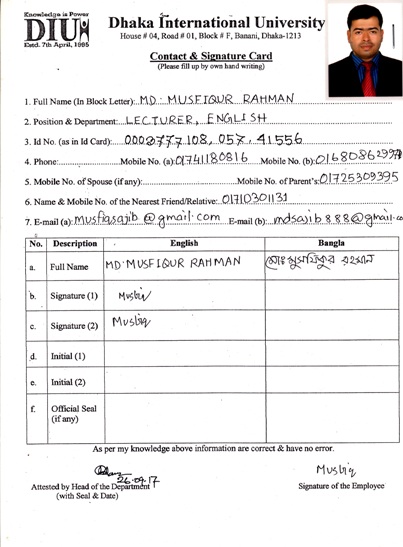 Knowledge is Power
DIU
Estd. 7th April, 1995
Dhaka International University
House # 04, Road # 01, Block # F, Banani, Dhaka-1213
Contact & Signature Card
(Please fill up by own hand writing)
1. Full Name (In Block Letter): MD. MUSFIQUR RAHMAN
2. Position & Department: LECTURER, ENGLISH
3. Id No. (as in Id Card): 0002777108, 057, 41556
4. Phone: Mobile No. (a): 01741180816 Mobile No. (b): 01680862997
5. Mobile No. of Spouse (if any): Mobile No. of Parent's: 01725309395
6. Name & Mobile No. of the Nearest Friend/Relative: 01710301131
7. E-mail (a): musfiqsajib@gmail.com E-mail (b): mdsajib888@gmail.co
No. Description English Bangla
a. Full Name MD. MUSFIQUR RAHMAN মোঃ মুসফিকুর রহমান
b. Signature (1) Musfiq
c. Signature (2) Musfiq
d. Initial (1)
e. Initial (2)
f. Official Seal
(if any)
As per my knowledge above information are correct & have no error.
26.09.17 Musfiq
Attested by Head of the Department Signature of the Employee
(with Seal & Date)